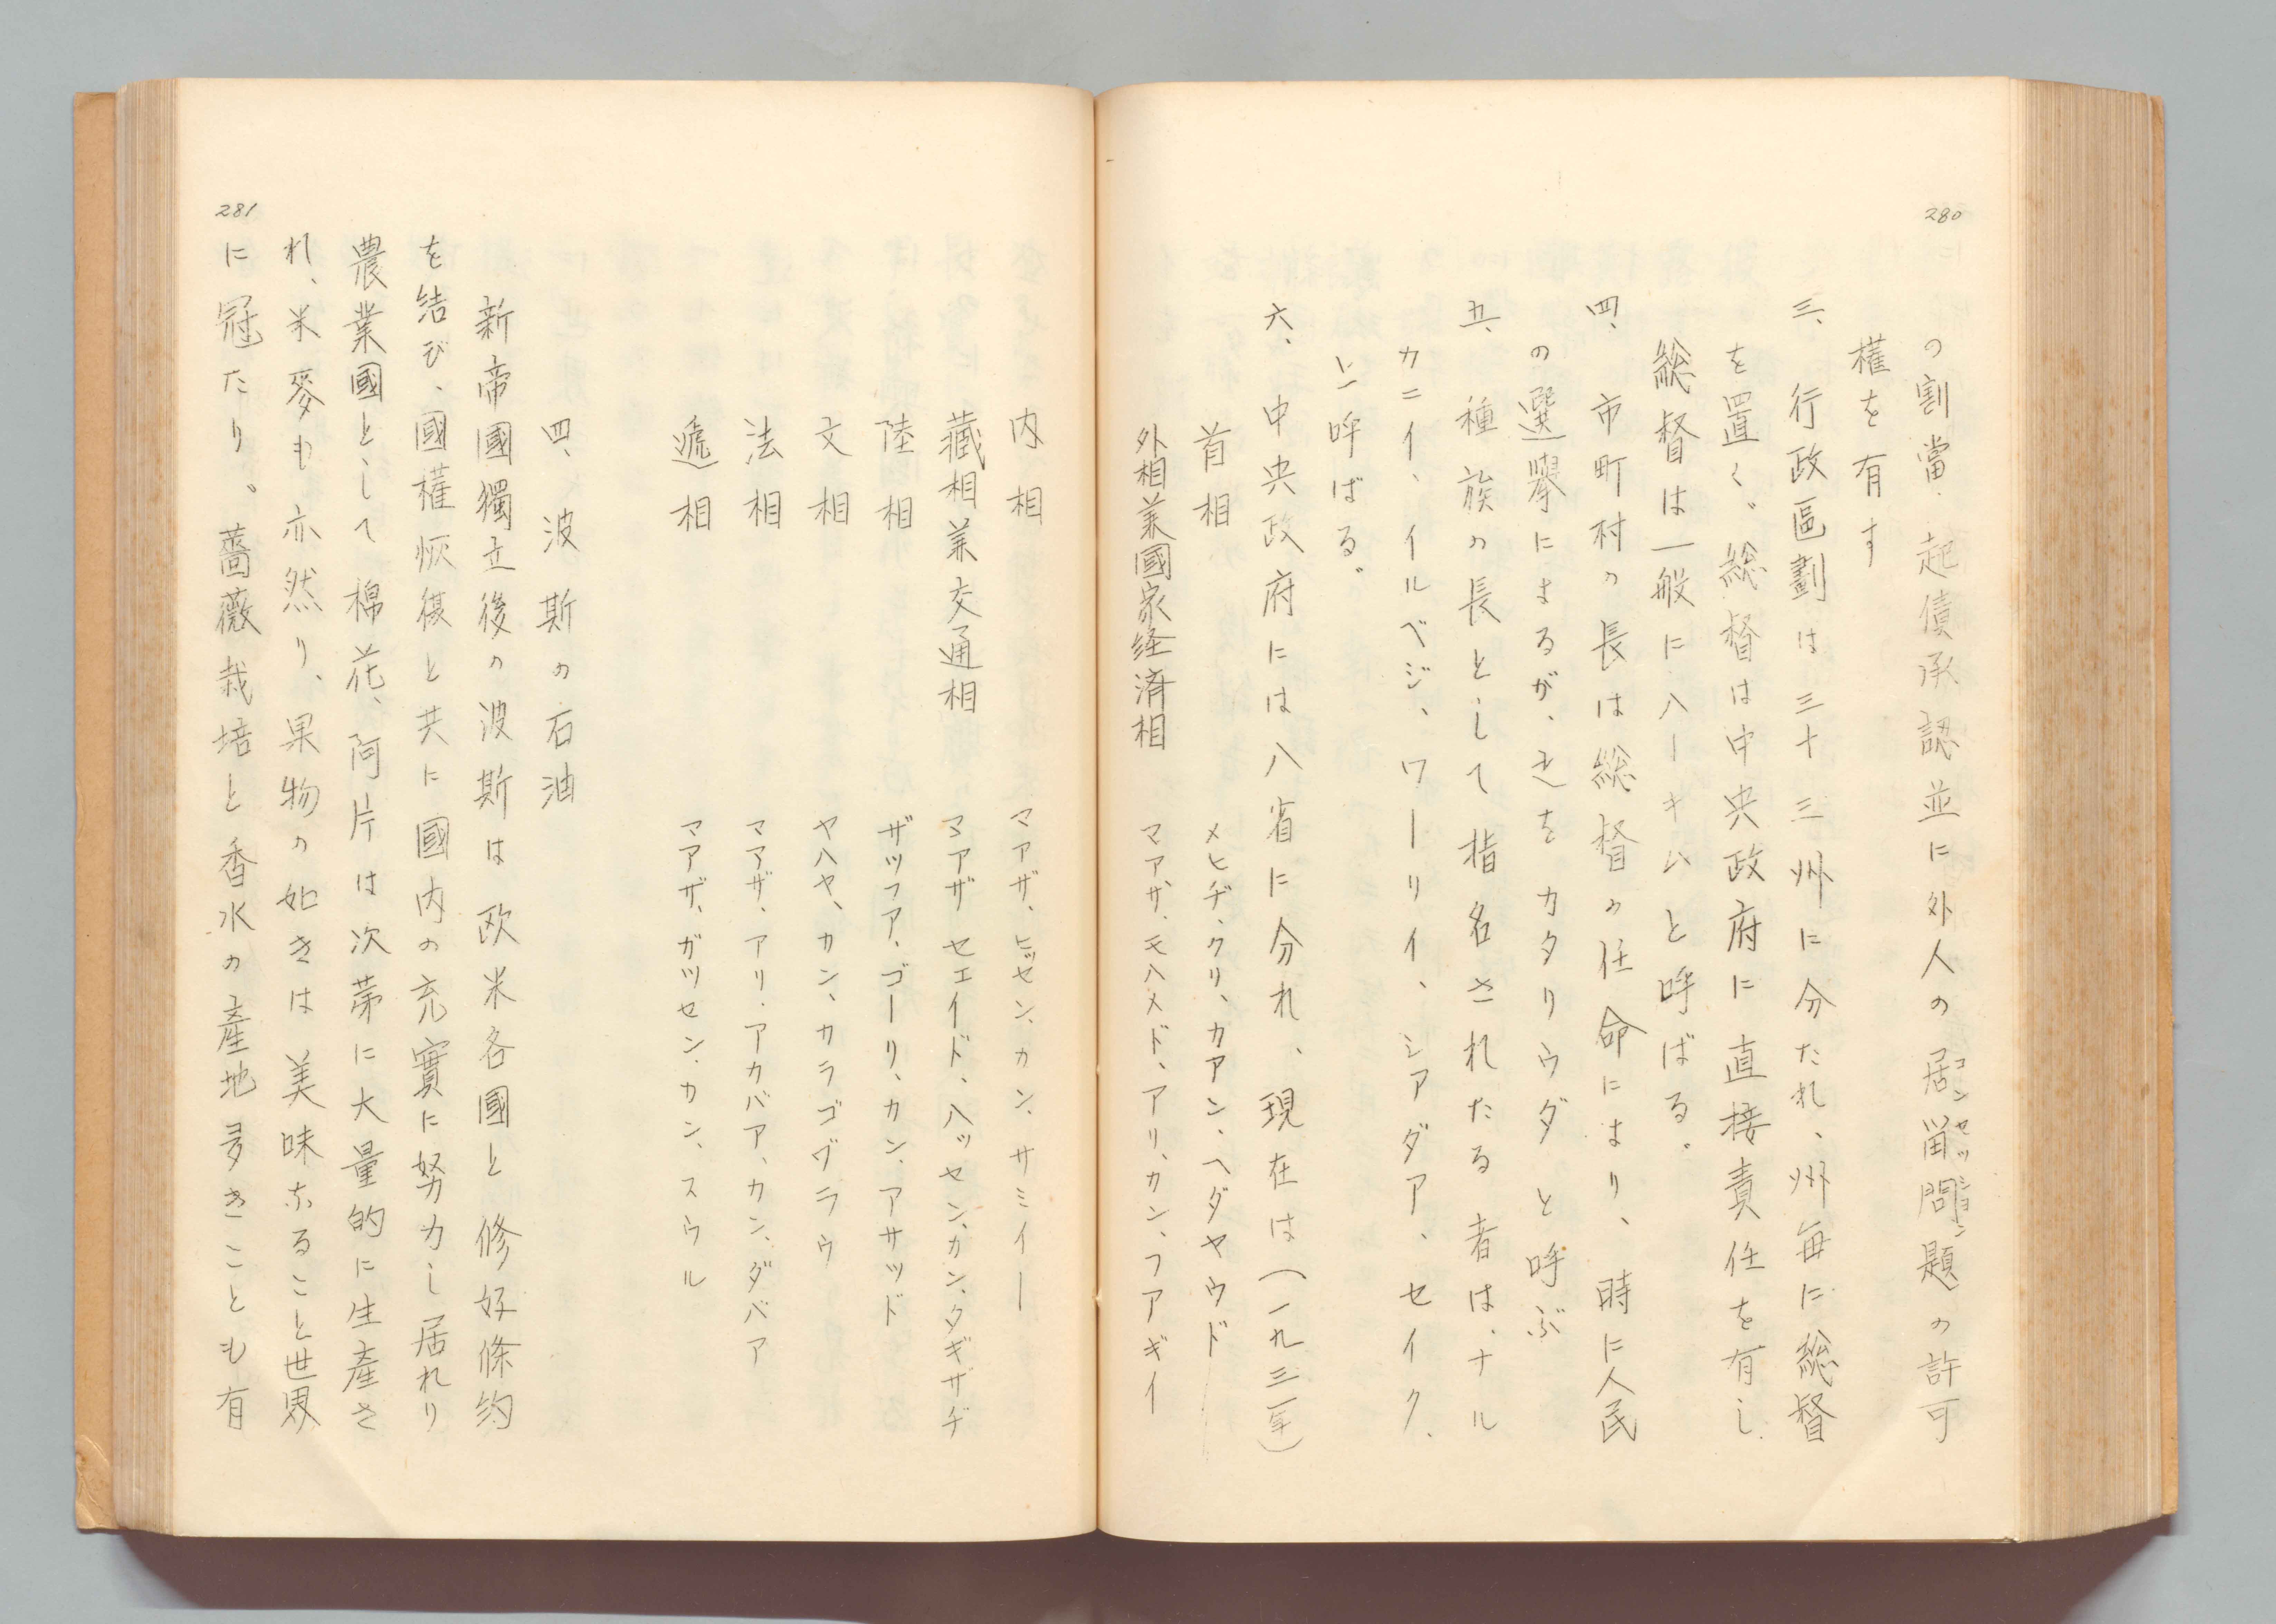 280
の割當、起債承認並に外人の居畄問題の許可
コンセッション
権を有す
三、行政區劃は三十三州に分たれ、州毎に総督
を置く。総督は中央政府に直接責任を有し
総督は一般にハーキムと呼ばる。
四、市町村の長は総督の任命により、時に人民
の選擧によるが、之をカタリウダと呼ぶ
五、種族の長として指名されたる者は、ナル
カニイ、イルベジ、ワーリイ、シアダア、セイク、
と呼ばる。
六、中央政府には八省に分れ、現在は(一九三一年)
首相 メヒヂ、クリ、カアン、ヘダヤウド
外相兼國家経済相 マアザ、モハメド、アリ、カン、フアギイ
内相 マアザ、ヒッセン、カン、サミイー
藏相兼交通相 マアザ セエイド、ハッセン、カン、タギザヂ
陸相 ザツフア、ゴーリ、カン、アサッド
文相 ヤハヤ、カン、カラゴヅラウ
法相 マアザ、アリ、アカバア、カン、ダバア
遞相 マアザ、ガツセン、カン、スウル
四、波斯の石油
新帝國獨立後の波斯は欧米各國と修好條約
を結び、國権恢復と共に國内の充實に努力し居れり
農業國として棉花、阿片は次第に大量的に生產さ
れ、米麥も亦然り、果物の如きは美味なること世界
に冠たり。薔薇栽培と香水の產地多きことも有
281